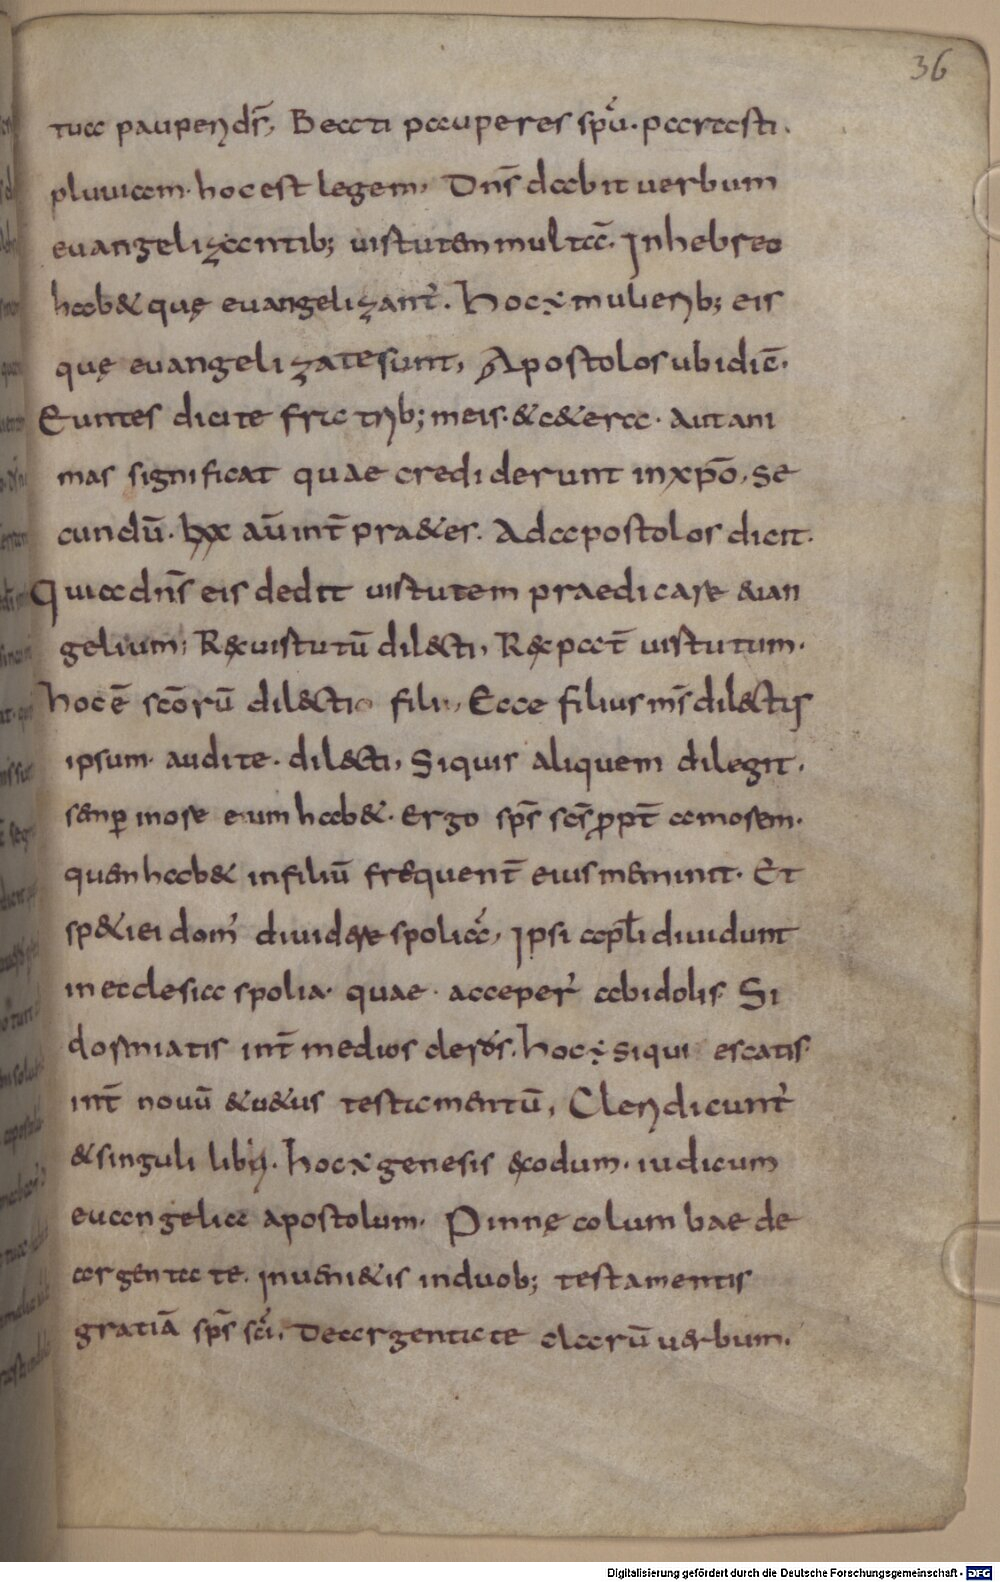 36
tua pauperi ds̄; Beati pauperes spū. parasti.
pluuiam. hoc est legem, Dn̄s dabit uerbum
euangelizantib; uirtutem multā. In hebreo
hab& quę euangelizant̄. hoc ÷ mulierib; eis
quę euangelizate sunt, Apostolos ubi dic̄.
Euntes dicite fratrib; meis. & c&era. Aut ani
mas significat quae crediderunt in xp̄o, Se
cundū. aū int̄pra&es. Ad apostolos dicit.
Quia dn̄s eis dedit uirtutem praedicare euan
gelium; Rex uirtutū dil&ti, Rex pat̄ uirtutum.
hoc ē sc̄orū dil&ti fili, Ecce filius m̄s dil&tus
ipsum. audite. dil&ti, Siquis aliquem dilegit.
semp̄ in ore eum hab&. Ergo sp̄s sc̄s ppt̄ amorem.
quem hab& in filiū frequent̄ eius meminit. Et
speciei dom' diuidere spolia, Ipsi apl̄i diuidunt
in eclesia spolia. quae. acceper' ab idolis. Si
dormiatis int̄ medios cleros. hoc ÷ si qui escatis
int̄ nouū & u&us testamentū, Cleri dicunt'
& singuli libri. hoc ÷ genesis exodum. iudicum
euangelia apostolum. Pinnę columbae de
argentate. inueni&is in duob; testamentis
gratiā sp̄s sc̄i. Deargentate clarū uerbum.
Digitalisierung gefördert durch die Deutsche Forschungsgemeinschaft - DFG